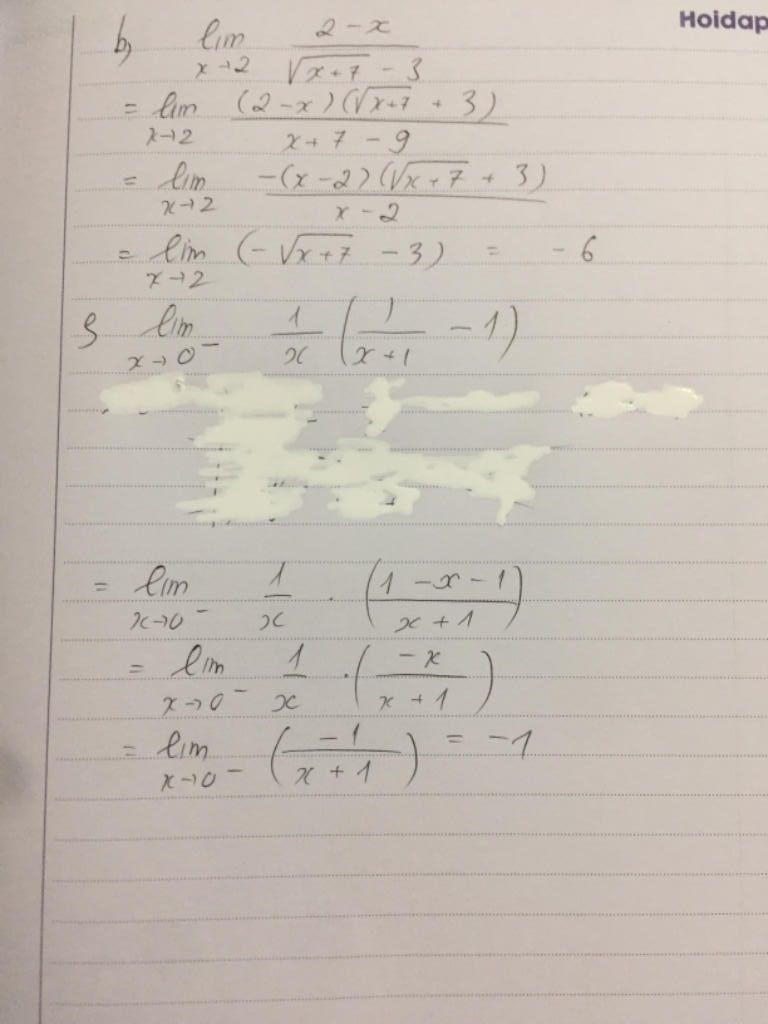 Hoidap
b, lim x→2 (2 - x)/(√(x+7) - 3)
= lim x→2 ((2 - x)(√(x+7) + 3))/(x + 7 - 9)
= lim x→2 (-(x - 2)(√(x+7) + 3))/(x - 2)
= lim x→2 (-√(x+7) - 3) = - 6
lim x→0⁻ 1/x (1/(x+1) - 1)
= lim x→0⁻ 1/x . ((1 - x - 1)/(x + 1))
= lim x→0⁻ 1/x .(-x/(x + 1))
= lim x→0⁻ (-1/(x + 1)) = -1